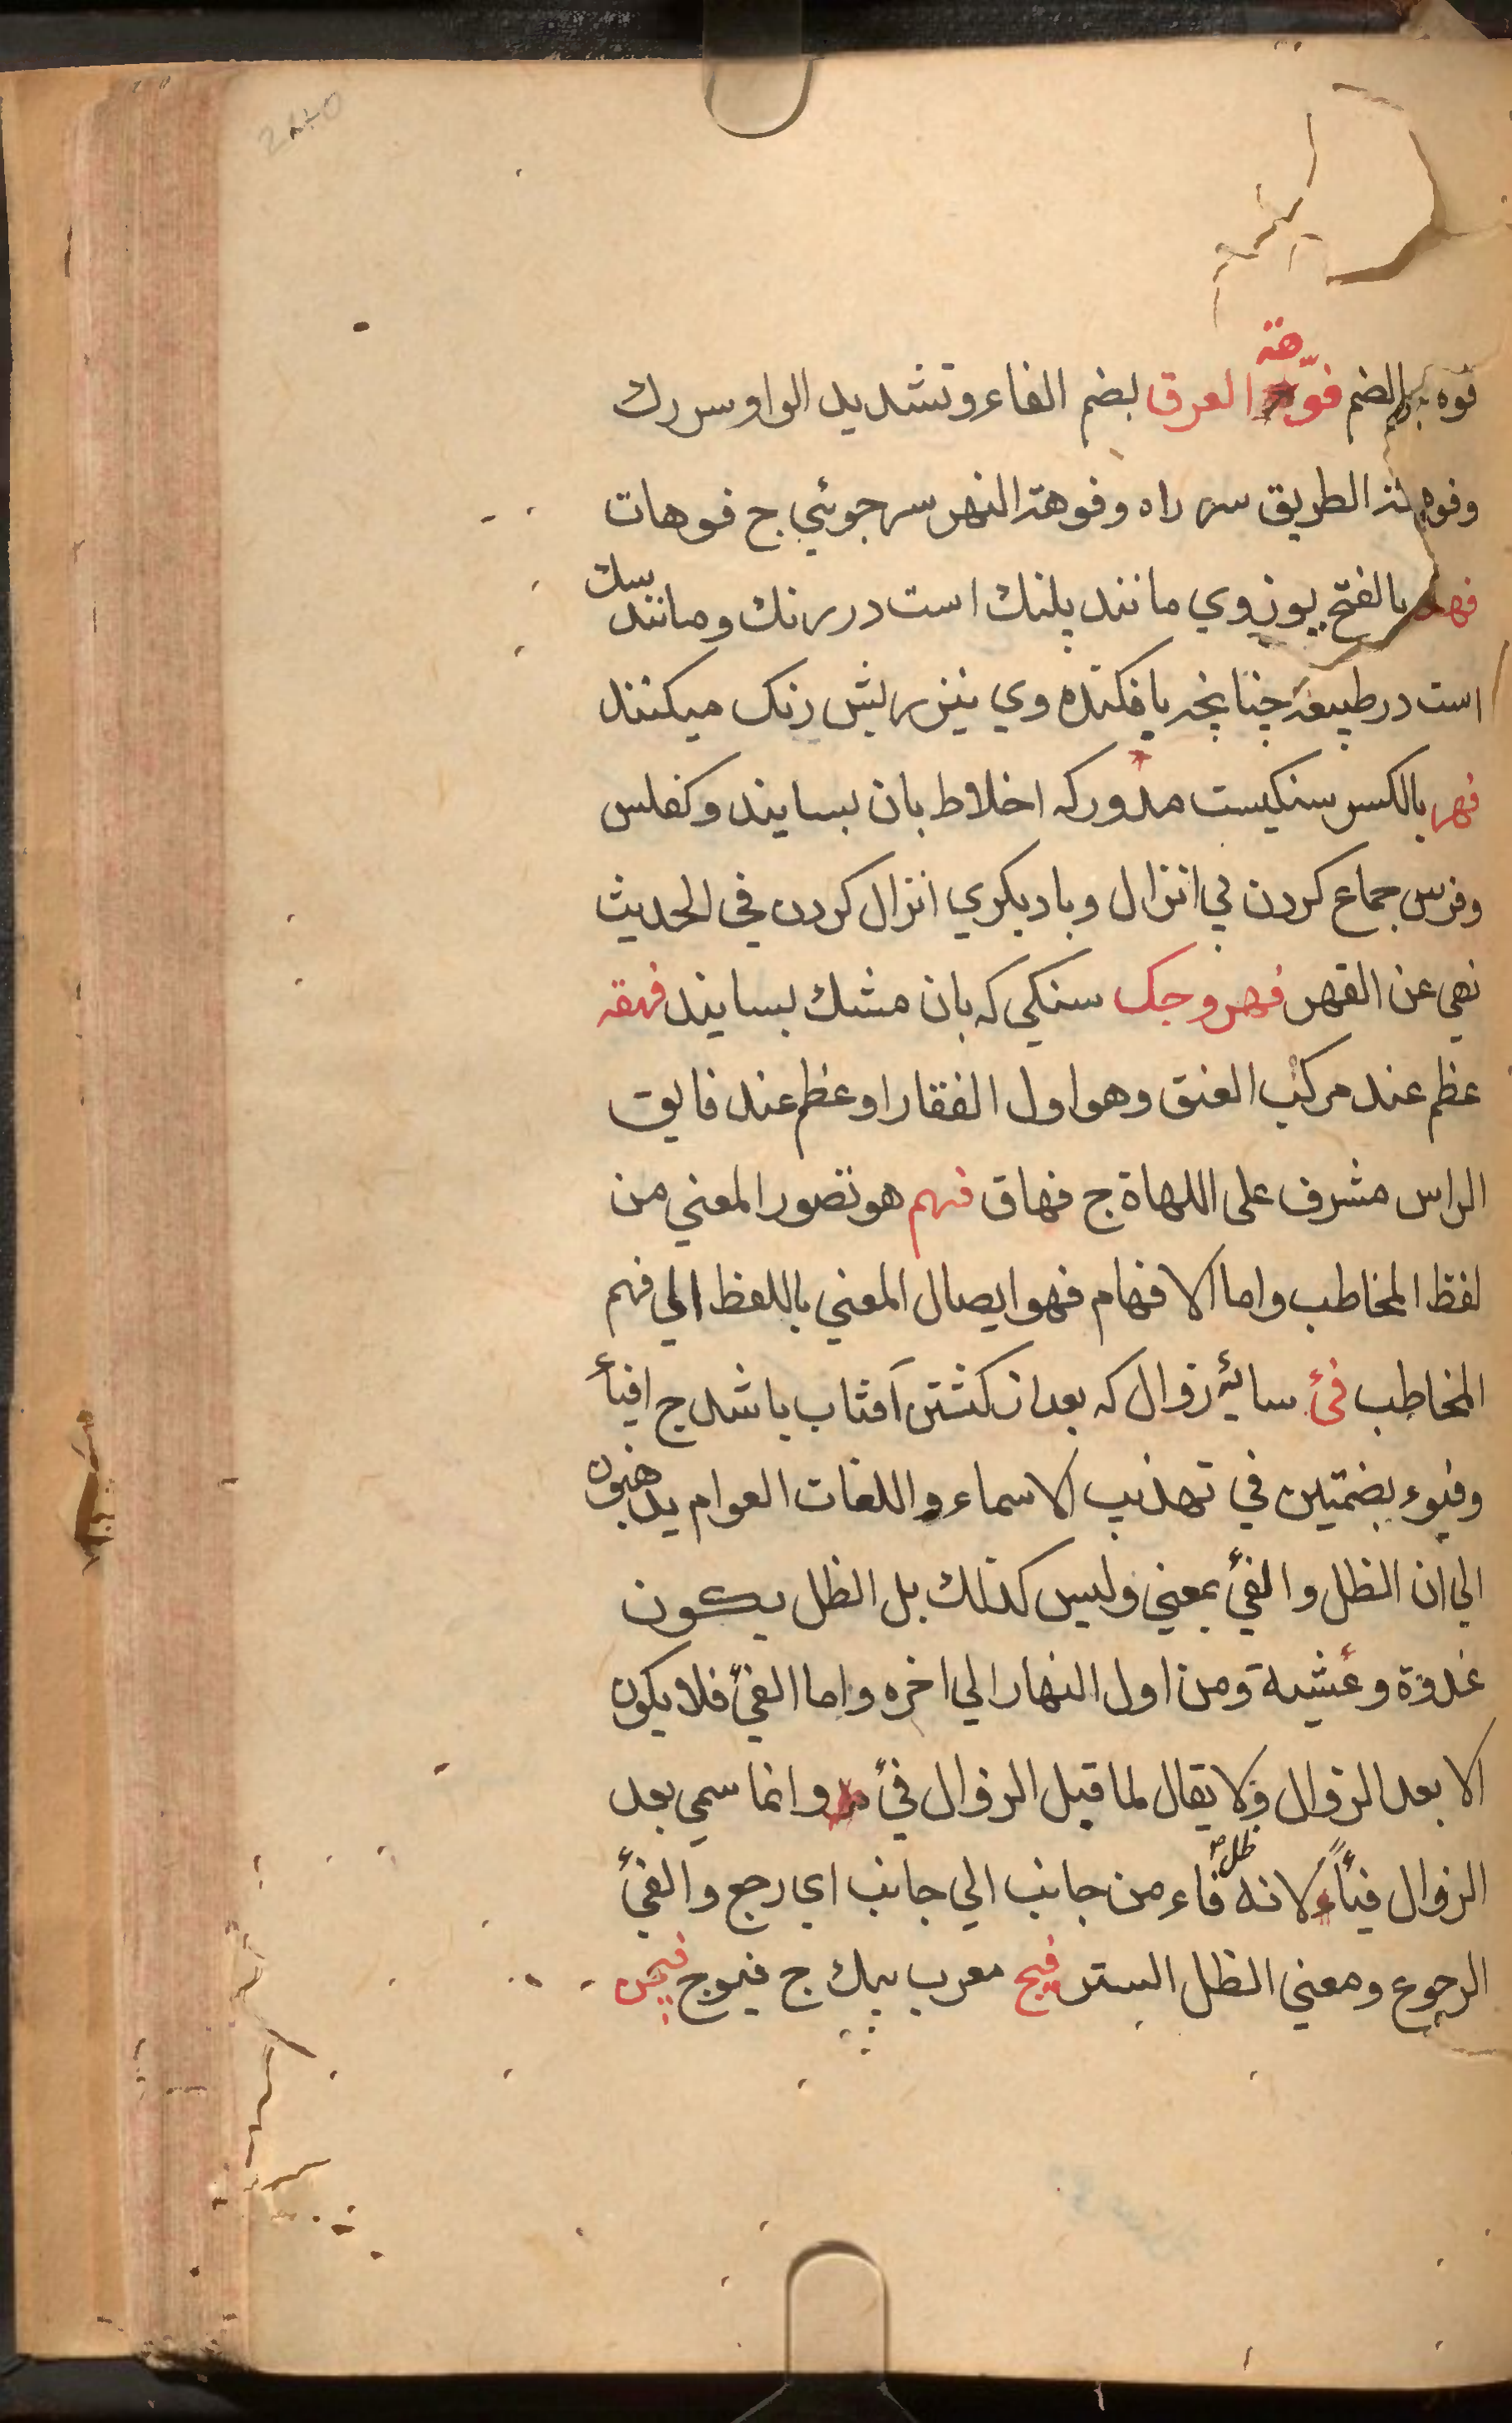 فوه بالضم فوّهة العرق بضم الفاء وتشديد الواو سر رك
وفوهة الطريق سر راه وفوهة النهر سر جوئي ج فوهات
فهد بالفتح يوز وي مانند پلنك است در رنك ومانند سك
است در طبيعة چنانچه يافكنده وي نيز ريش رنك ميكنند
فهر بالكسر سنكيست مدور كه اخلاط بان بسايند وكفلس
وفرس جماع كردن بي انزال وباديكري انزال كردن في الحديث
نهي عن الفهر فهروجك سنكي كه بان مشك بسايند فهقه
عظم عند مركب العنق وهو اول الفقار او عظم عند فايق
الراس مشرف على اللهاة ج فهاق فهم هو تصور المعني من
لفظ المخاطب واما الافهام فهو ايصال المعني باللفظ الي فهم
المخاطب فئ سايۀ زوال كه بعد از كشتن آفتاب باشد ج افيأء
وفيوء بضمتين في تهذيب الاسماء واللغات العوام يذهبون
الي ان الظل والفئ بمعني وليس كذلك بل الظل يكون
غدوة وعشية ومن اول النهار الي اخره واما الفئ فلا يكون
الا بعد الزوال ولا يقال لما قبل الزوال فئ وانما سمي بعد
الزوال فيأً لانه ظل فاء من جانب الي جانب اي رجع والفئ
الرجوع ومعني الظل الستر فيج معرب پيك ج فيوج فيجن